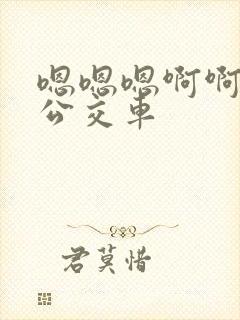 嗯嗯嗯啊啊
公交车
君莫惜